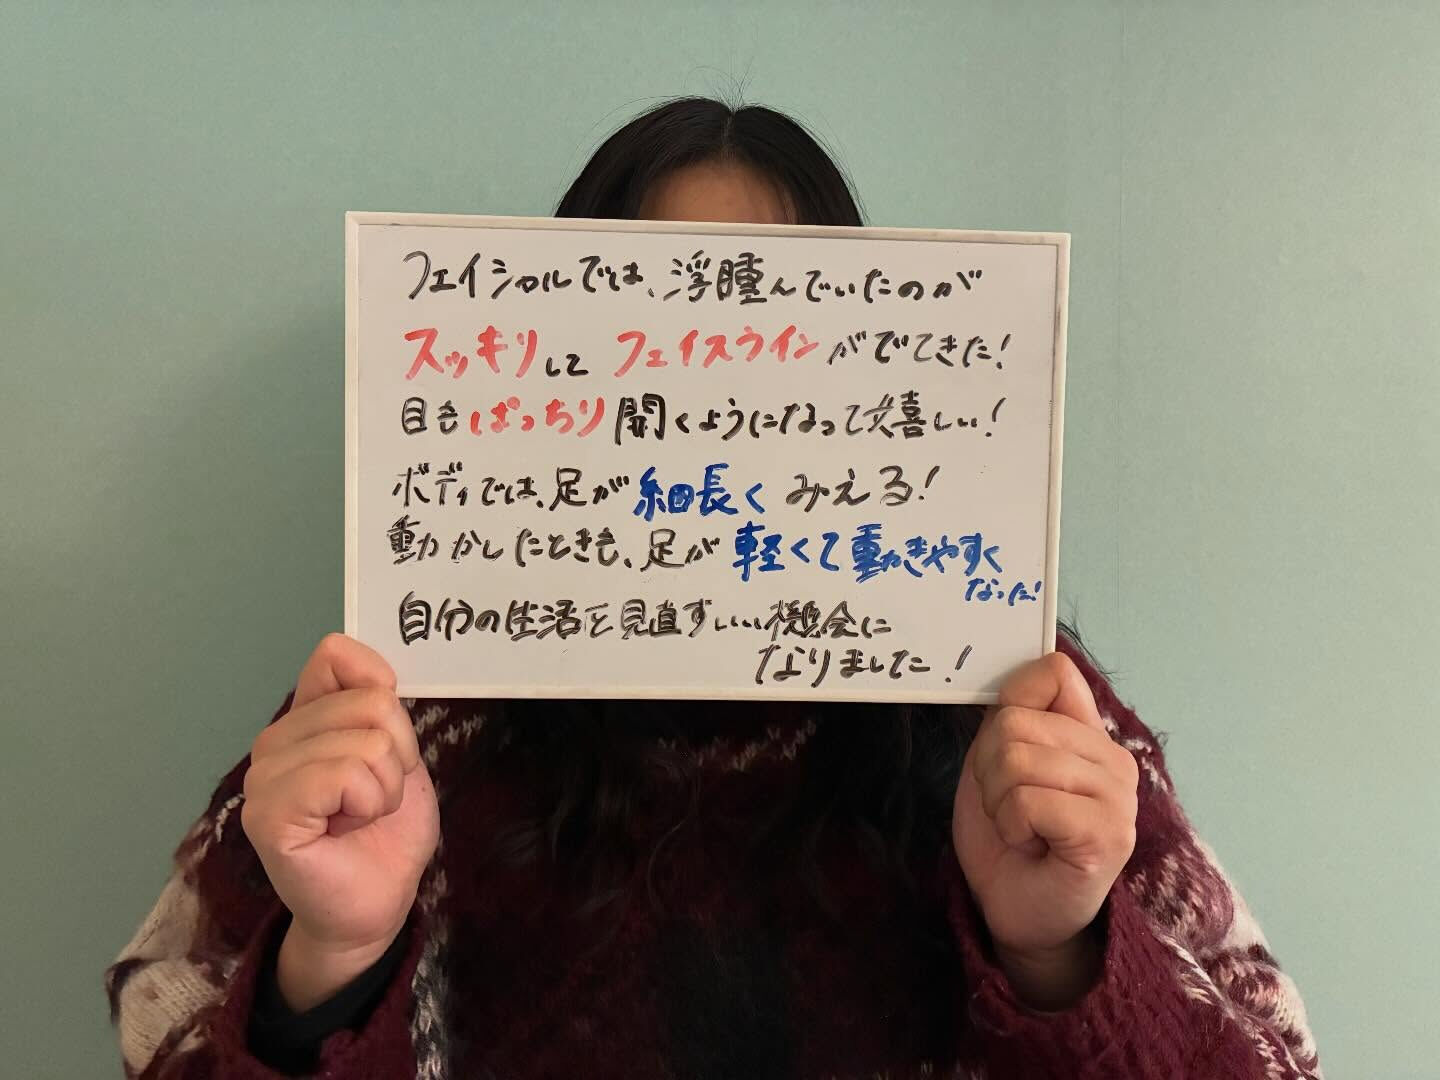 フェイシャルでは、浮腫んでいたのが
スッキリして フェイスラインがでてきた!
目もぱっちり開くようになって嬉しい!
ボディでは、足が細長くみえる!
動かしたときも、足が軽くて動きやすく
なった!
自分の生活を見直すいい機会に
なりました!